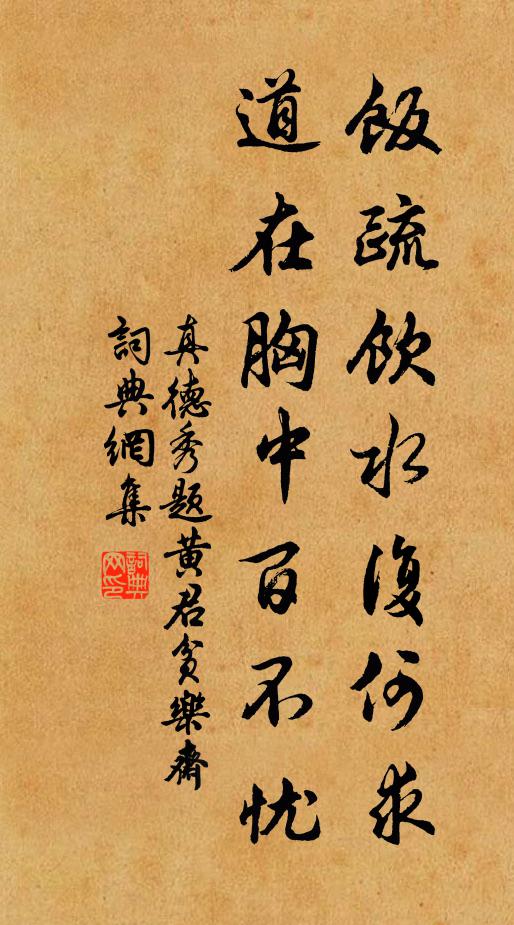 飯疏飲水復何求
道在胸中百不忧
真德秀题黄君貧樂齋
詞典網集
詞典網印